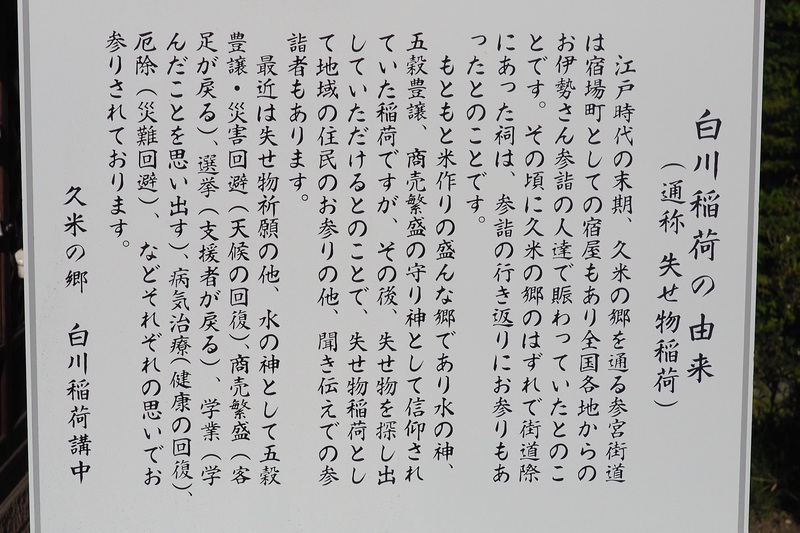 白川稲荷の由来
（通称 失せ物稲荷）
江戸時代の末期、久米の郷を通る参宮街道
は宿場町としての宿屋もあり全国各地からの
お伊勢さん参詣の人達で賑わっていたとのこ
とです。その頃に久米の郷のはずれで街道際
にあった祠は、参詣の行き返りにお参りもあ
ったとのことです。
もともと米作りの盛んな郷であり水の神、
五穀豊譲、商売繁盛の守り神として信仰され
ていた稲荷ですが、その後、失せ物を探し出
していただけるとのことで、失せ物稲荷とし
て地域の住民のお参りの他、聞き伝えでの参
詣者もあります。
最近は失せ物祈願の他、水の神として五穀
豊譲・災害回避（天候の回復）、商売繁盛（客
足が戻る）、選挙（支援者が戻る）、学業（学
んだことを思い出す）、病気治療（健康の回復）、
厄除（災難回避）、などそれぞれの思いでお
参りされております。
久米の郷 白川稲荷講中